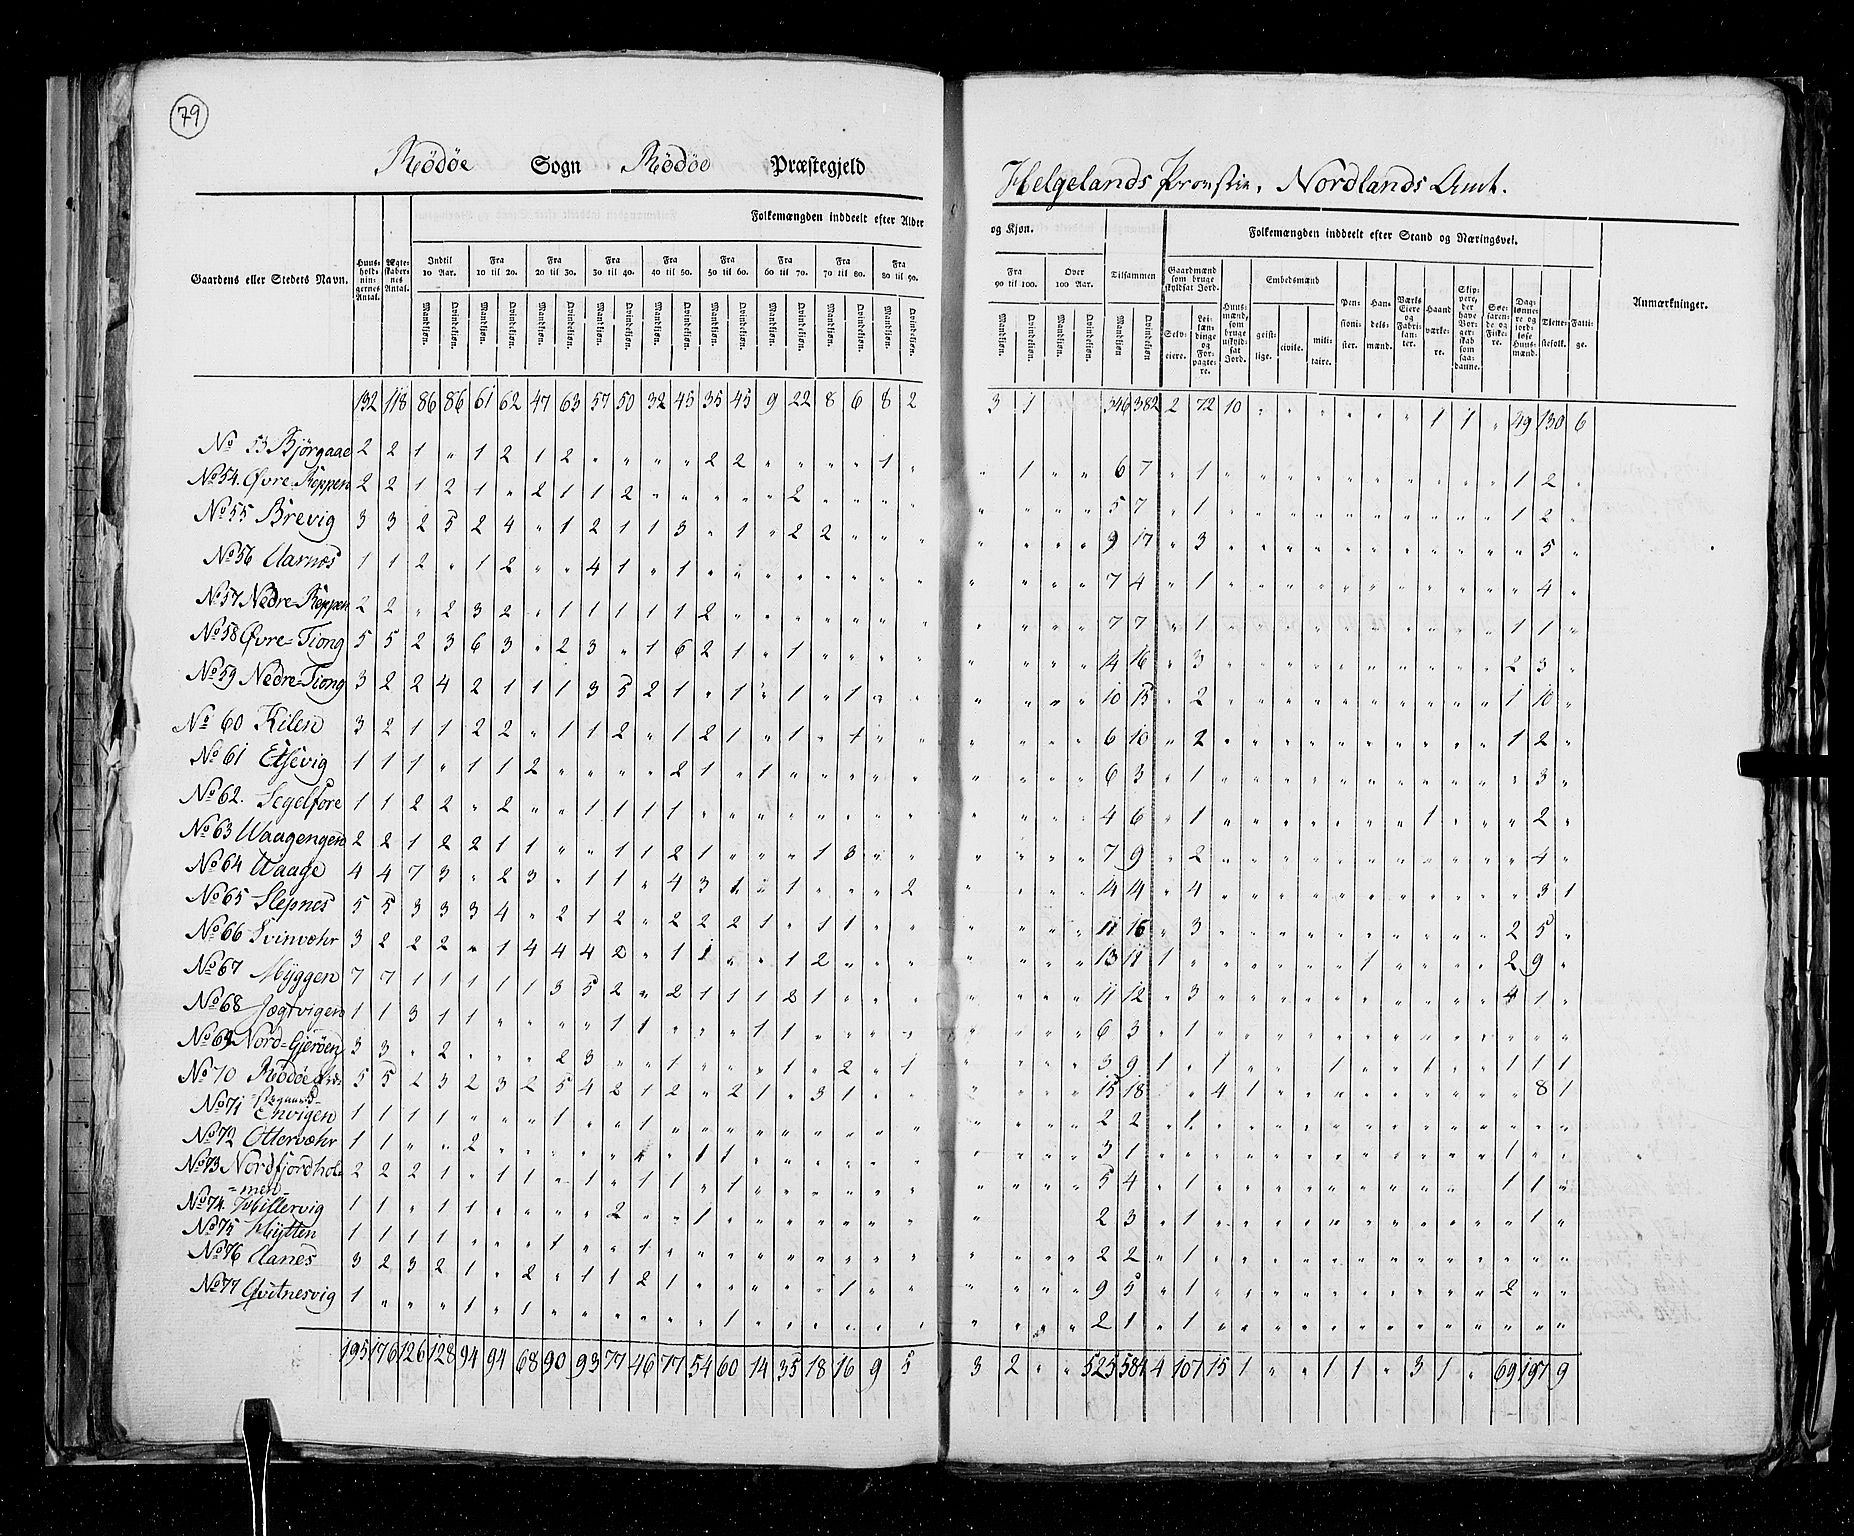 79
Rödöe Sogn Rödöe Præstegjeld
Helgelands Provstie, Nordlands Amt.
Gaardens eller Stedets Navn.
Huus-holdnin-gernes Antal.
Ægte-skaber-nes Antal.
Folkemængden inddeelt efter Alder
og Kjøn.
Indtil 10 Aar. Fra 10 til 20. Fra 20 til 30. Fra 30 til 40. Fra 40 til 50. Fra 50 til 60. Fra 60 til 70. Fra 70 til 80. Fra 80 til 90.
Fra 90 til 100. Over 100 Aar. Tilsammen
Mandkjøn. Qvindekjøn.
Folkemængden inddeelt efter Stand og Næringsvei.
Gaardmænd som bruge skyldsat Jord.
Selveiere.
Leilændinge og Forpagtere.
Huusmænd, som bruge uskyldsat Jord.
Embedsmænd
geistlige. civile. militaire.
Pensionister.
Handelsmænd.
Værks Eiere og Fabrikanter.
Haandværkere.
Skippere, der have Borgerskab som saadanne.
Søefarende og Fiskere.
Dagløn̄ere og jordløse Huusmænd.
Tjenestefolk.
Fattige.
Anmærkninger.
132 118 86 86 61 62 47 63 57 50 32 45 35 45 9 22 8 6 8 2 3 1 346 382 2 72 10 " " " " " " 1 1 " 49 130 6
No 53 Bjørgaae 2 2 1 " 1 2 1 2 " " " " 2 2 " " " " 1 " " 1 " " 6 7 " 1
No 54. Øvre Reppen 2 2 1 2 1 " 2 1 1 2 " " " " " 2 5 7 " 1 1 2
No 55 Brevig 3 3 2 5 2 4 " 1 2 1 1 3 " 1 " 2 2 9 17 " 3 5
No 56 Aarnæs 1 1 2 " 1 2 " " 4 1 " 1 7 4 " 1 4
No 57 Nedre-Reppen 2 2 " 2 3 2 " 1 1 1 1 1 2 7 7 " 1 1 1
No 58 Øvre=Tiong 5 5 2 3 6 3 " 2 3 " 1 6 2 1 " 1 14 16 " 3 2 3
No 59 Nedre=Tiong 3 2 2 4 2 1 1 1 3 5 2 1 " 1 " 1 " 1 10 15 " 2 1 10
No 60 Kilen 3 2 1 1 2 2 " 1 1 2 " 1 2 1 " 1 " 1 6 10 " 2 1 2
No 61 Etsevig 1 1 1 " 1 1 2 " " " " 2 1 " 1 6 3 " 1 3
No 62. Segelfore 1 1 2 2 " 2 " " 1 1 1 1 4 6 " 1 1 2
No 63 Waagengen 2 2 1 2 2 1 1 " " 1 1 2 1 " " " 1 3 7 9 " 2 4
No 64 Waage 4 4 7 3 " 2 3 " 1 1 " 4 3 1 " 1 " " " 2 14 14 " 4 3 1
No 65 Slepnes 5 5 3 3 3 4 " 2 1 2 " 2 2 2 1 " 1 1 11 16 " 3 2 5
No 66 Svinvæhr 3 2 2 2 " 1 4 4 4 2 " 1 1 " " 1 2 13 11 1 1 2 9
No 67 Myggen 7 7 1 1 1 1 1 3 5 2 " 2 1 1 1 2 1 11 12 " 3 4 1
No 68 Jægtvigen 1 1 3 1 1 " " " " 1 1 " " " 1 1 6 3 " 1
No 69 Nord=Gjerøen 3 3 " 2 " " " 2 3 " " 1 " " " 1 " 2 " 1 3 9 1 " 1 1 1 1 1 1
No 70 Rödöe Præstegaard 5 5 2 3 2 3 2 5 4 2 1 2 " 2 1 " 3 1 15 18 " " 4 1 8 1
No 71 Envigen 1 1 1 1 " " " 1 " " " 1 2 2 " 1
No 72 Ottervæhr 1 1 " " 2 " " " " " " " 1 1 3 1 1
No 73 Nordfjordhol=
=men 2 2 2 1 " 1 1 " 1 " 1 1 " 1 5 4 " 1 1 1
No 74. Hillervig 1 1 " 1 1 " " " " 2 " " 1 2 3 " 1 1
No 75 Hytten 1 1 1 1 " " " 1 " " 1 2 2 " 1
No 76 Aanes 3 2 3 2 1 " 2 " 1 1 2 1 " " " " " 1 9 5 " 1 2
No 77 Qvitnesvig 1 " " " 1 " 1 " " " " " " 1 2 1 " 1
195 176 126 128 94 94 68 90 93 77 46 77 54 60 14 35 18 16 9 5 3 2 " " 525 584 4 107 15 1 " " 1 1 " 3 1 " 69 197 9